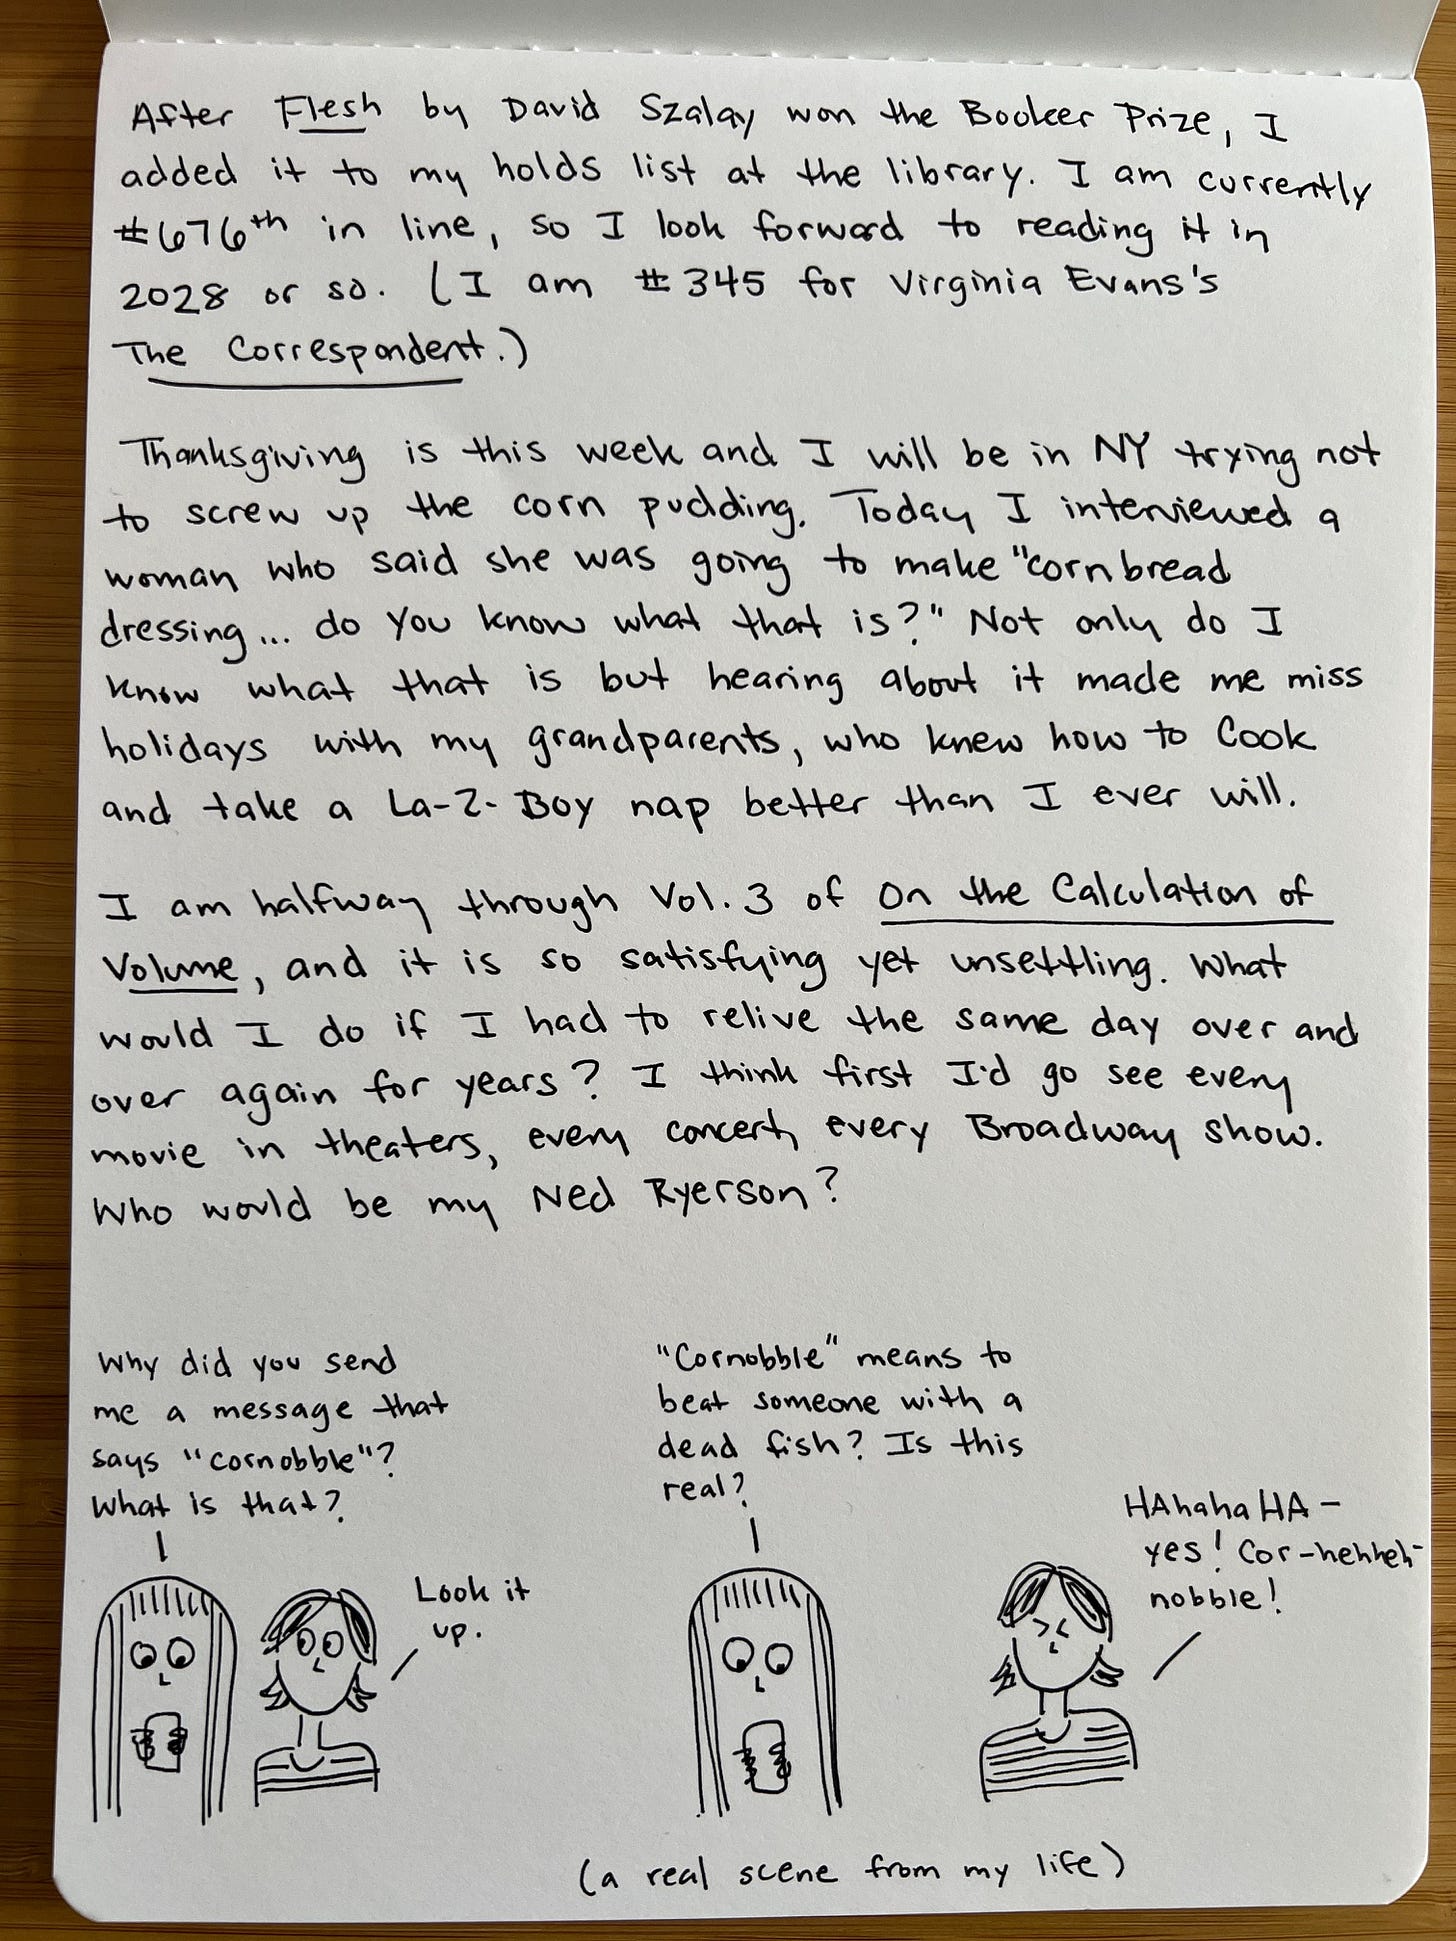 After Flesh by David Szalay won the Booker Prize, I
added it to my holds list at the library. I am currently
#676th in line, so I look forward to reading it in
2028 or so. (I am #345 for Virginia Evans's
The Correspondent.)
Thanksgiving is this week and I will be in NY trying not
to screw up the corn pudding. Today I interviewed a
woman who said she was going to make "cornbread
dressing... do you know what that is?" Not only do I
know what that is but hearing about it made me miss
holidays with my grandparents, who knew how to cook
and take a La-Z-Boy nap better than I ever will.
I am halfway through Vol. 3 of On the Calculation of
Volume, and it is so satisfying yet unsettling. What
would I do if I had to relive the same day over and
over again for years? I think first I'd go see every
movie in theaters, every concert, every Broadway show.
Who would be my Ned Ryerson?
Why did you send
me a message that
says "cornobble"?
What is that?
Look it
up.
"Cornobble" means to
beat someone with a
dead fish? Is this
real?
HAhahaHA -
yes! Cor-hehheh-
nobble!
(a real scene from my life)